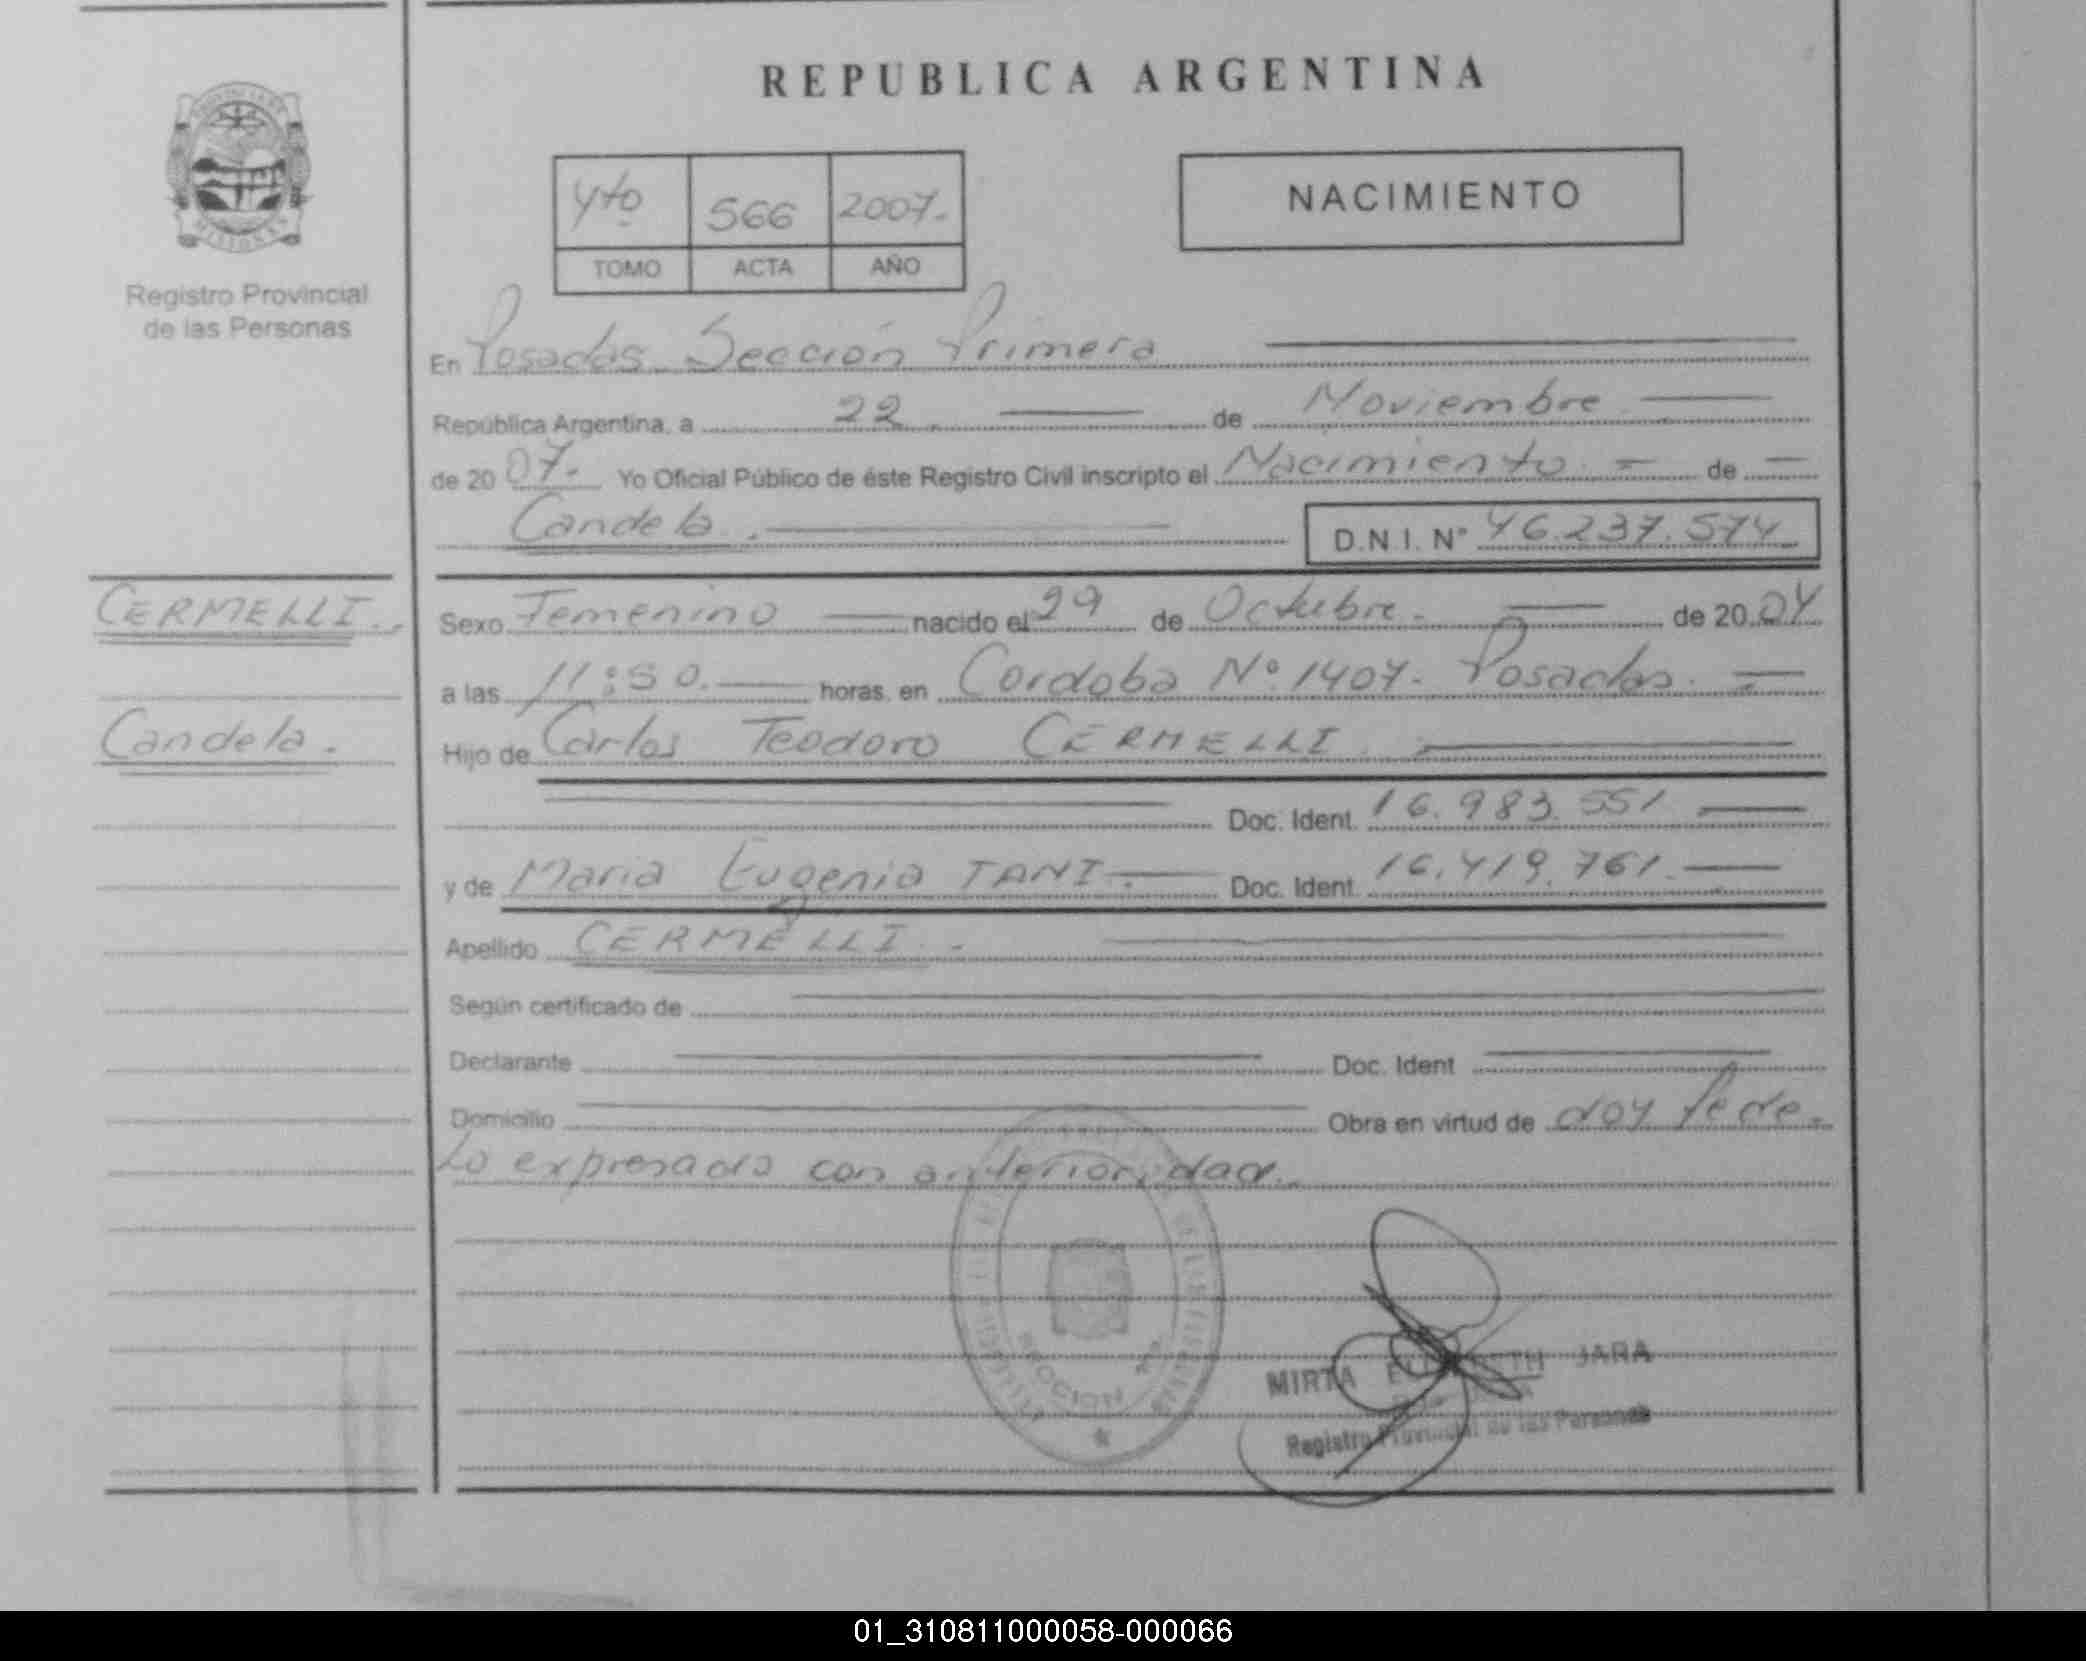 REPUBLICA ARGENTINA
MISIONES
Registro Provincial
de las Personas
4to 566 2007.
TOMO ACTA AÑO
NACIMIENTO
En Posadas Sección Primera
República Argentina, a 22 de Noviembre
de 20 07. Yo Oficial Público de éste Registro Civil inscripto el Nacimiento. de
Candela. D.N.I. N° 46.237.574
CERMELLI.
Candela.
Sexo Femenino nacido el 29 de Octubre. de 20 04
a las 11:50. horas, en Cordoba N° 1407. Posadas.
Hijo de Carlos Teodoro CERMELLI.
Doc. Ident. 16.983.551
y de Maria Eugenia TANI. Doc. Ident. 16.419.761.
Apellido CERMELLI.
Según certificado de
Declarante Doc. Ident
Domicilio Obra en virtud de doy fe de.
Lo expresado con anterioridad.
SECCION
MIRTA JARA
Registro Provincial de las Personas
01_310811000058-000066